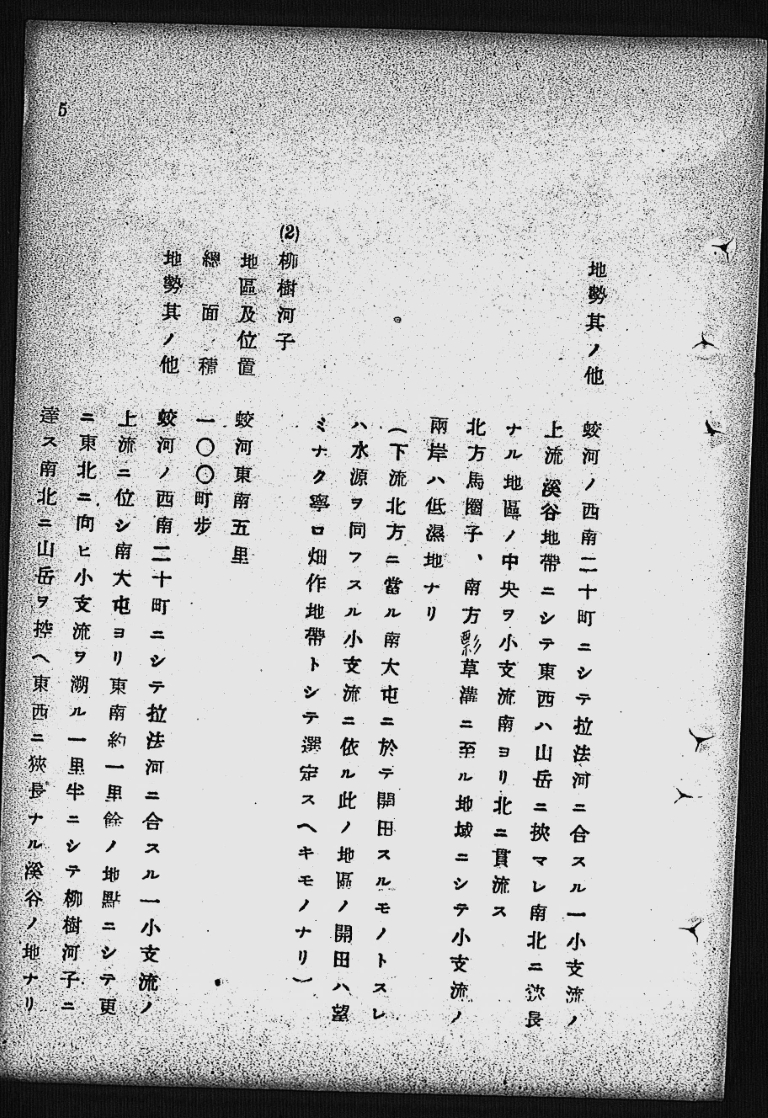 地勢其ノ他
蛟河ノ西南二十町ニシテ拉法河ニ合スル一小支流ノ
上流溪谷地帶ニシテ東西ハ山岳ニ挾マレ南北ニ狹長
ナル地區ノ中央ヲ小支流南ヨリ北ニ貫流ス
北方馬圈子、南方草溝ニ至ル地域ニシテ小支流ノ
兩岸ハ低濕地ナリ
(下流北方ニ當ル南大屯ニ於テ開田スルモノトスレ
ハ水源ヲ同フスル小支流ニ依ル此ノ地區ノ開田ハ望
ミナク寧ロ畑作地帶トシテ選定スヘキモノナリ)
(2) 柳樹河子
地區及位置 蛟河東南五里
總面積 一〇〇町步
地勢其ノ他 蛟河ノ西南二十町ニシテ拉法河ニ合スル一小支流ノ
上流ニ位シ南大屯ヨリ東南約一里餘ノ地點ニシテ更
ニ東北ニ向ヒ小支流ヲ溯ル一里半ニシテ柳樹河子ニ
達ス南北ニ山岳ヲ控ヘ東西ニ狹長ナル溪谷ノ地ナリ
5